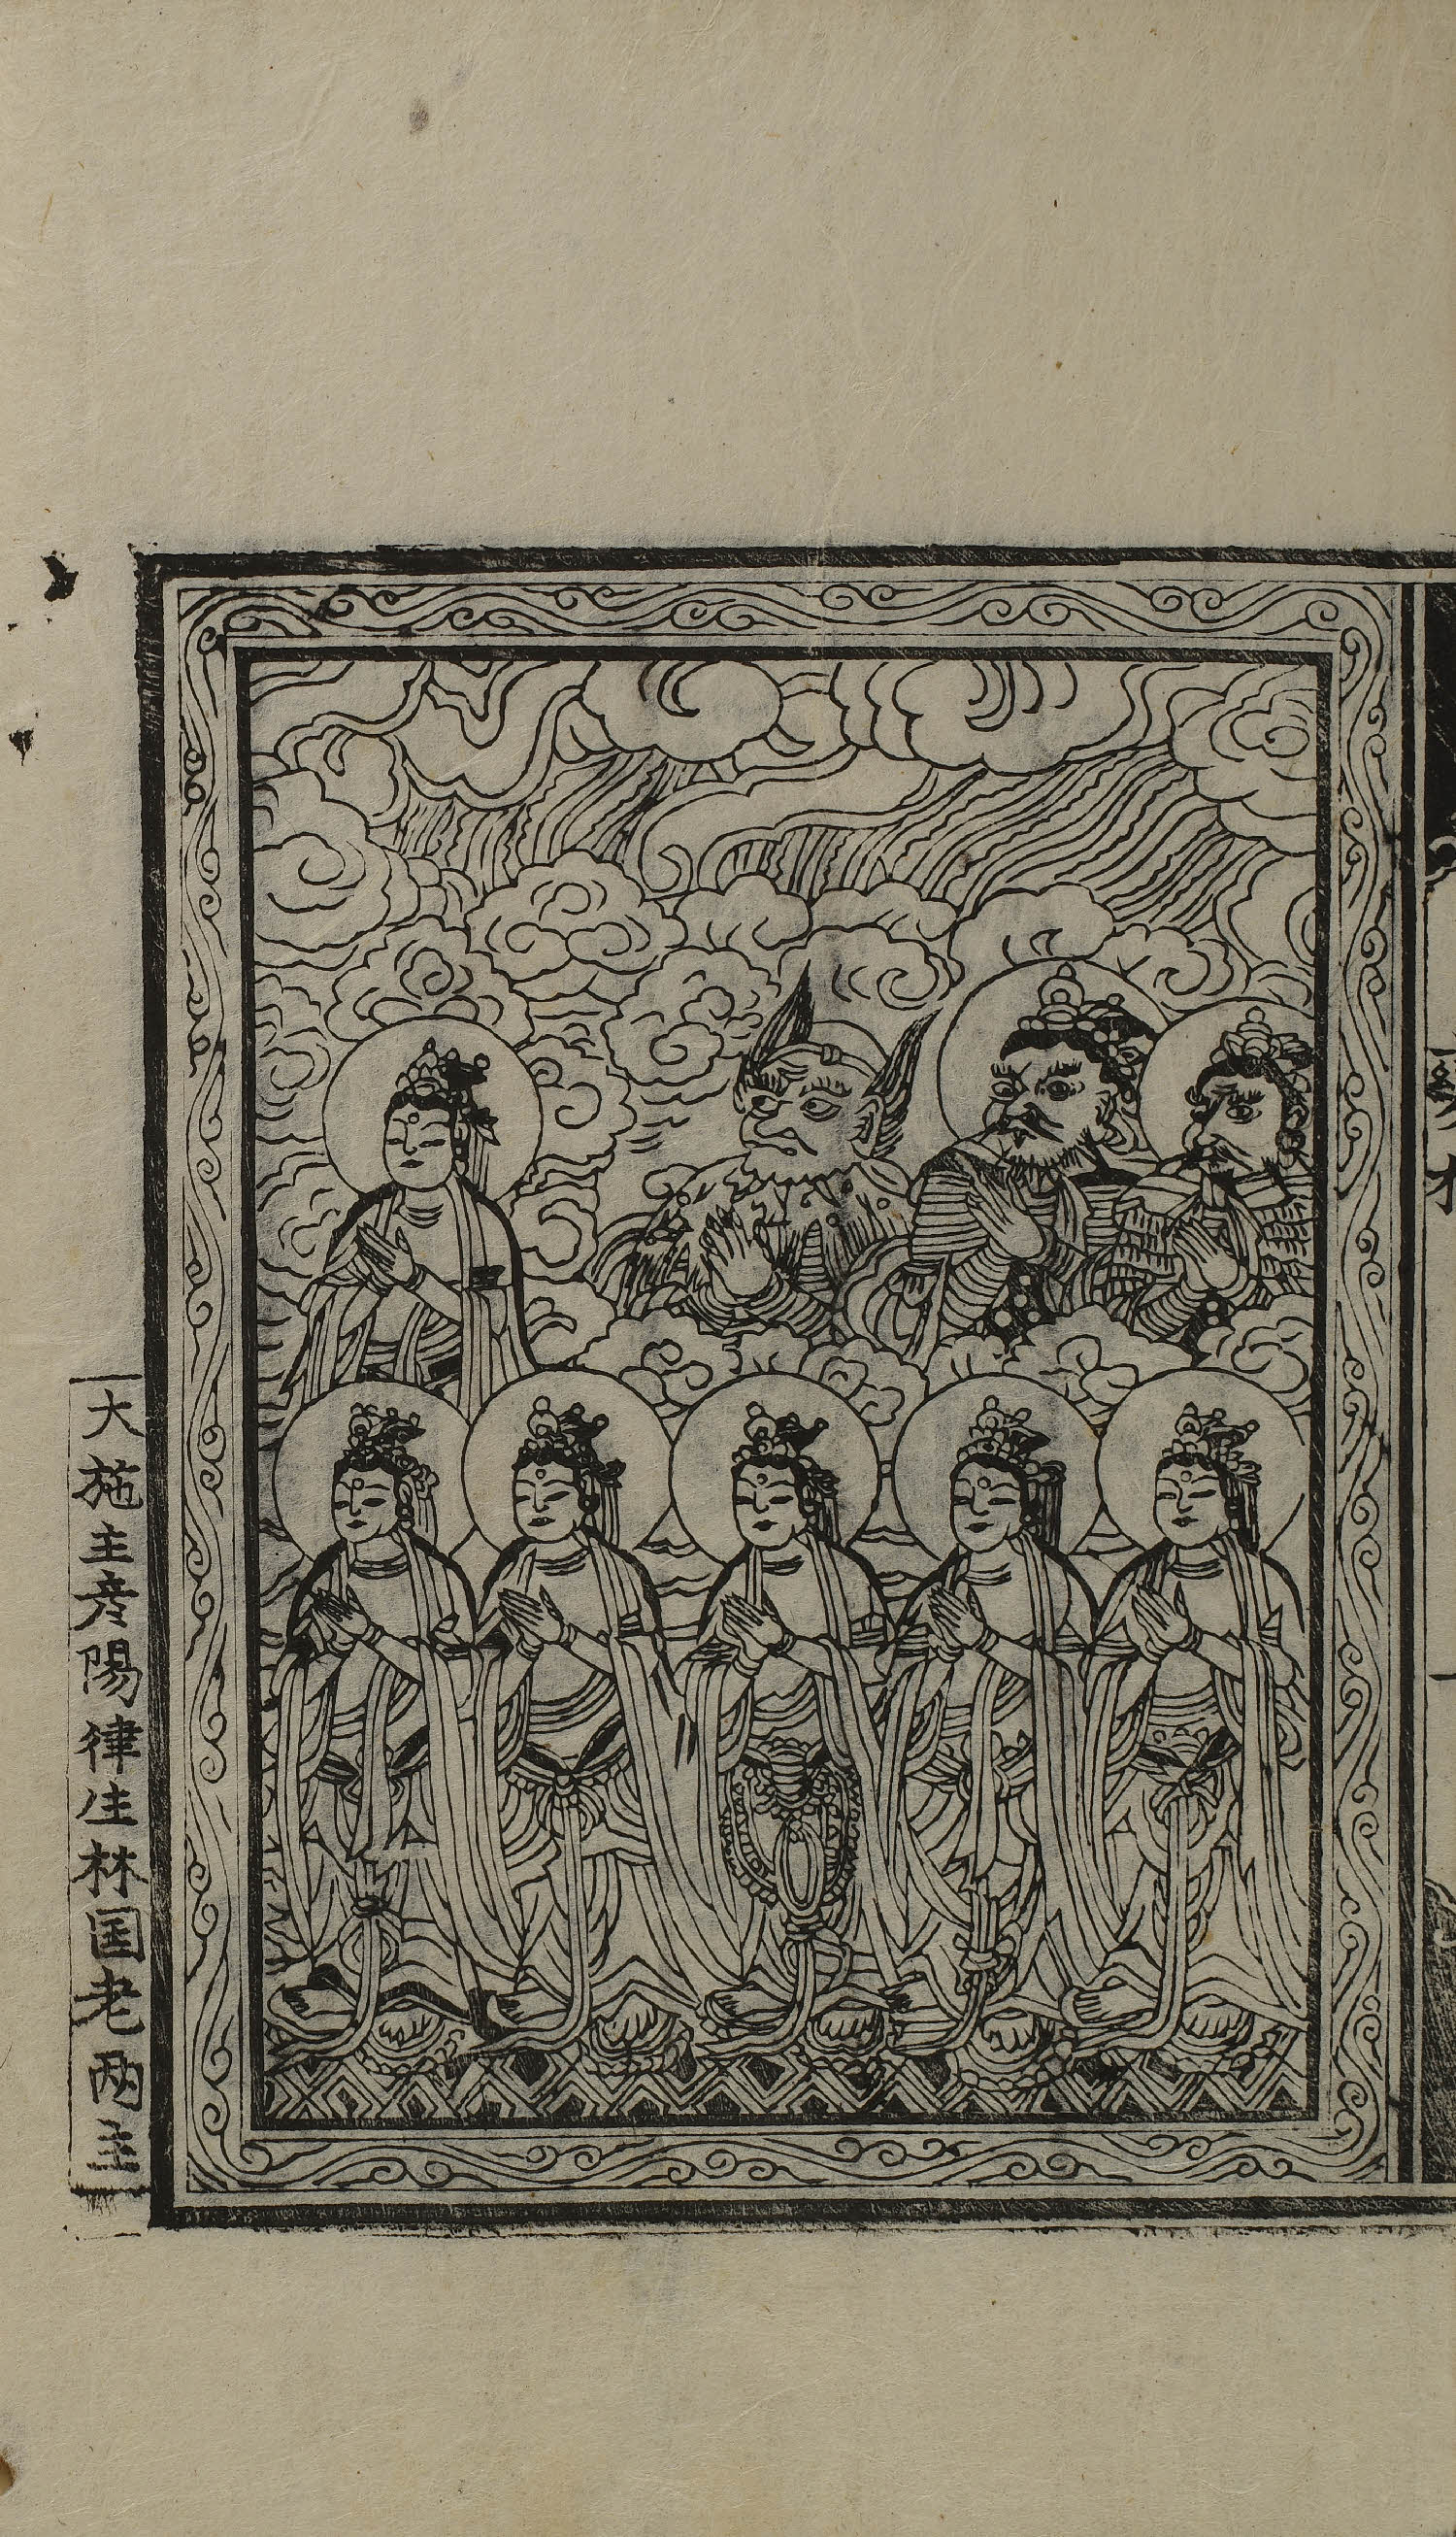 大施主彦陽律生林国老两主